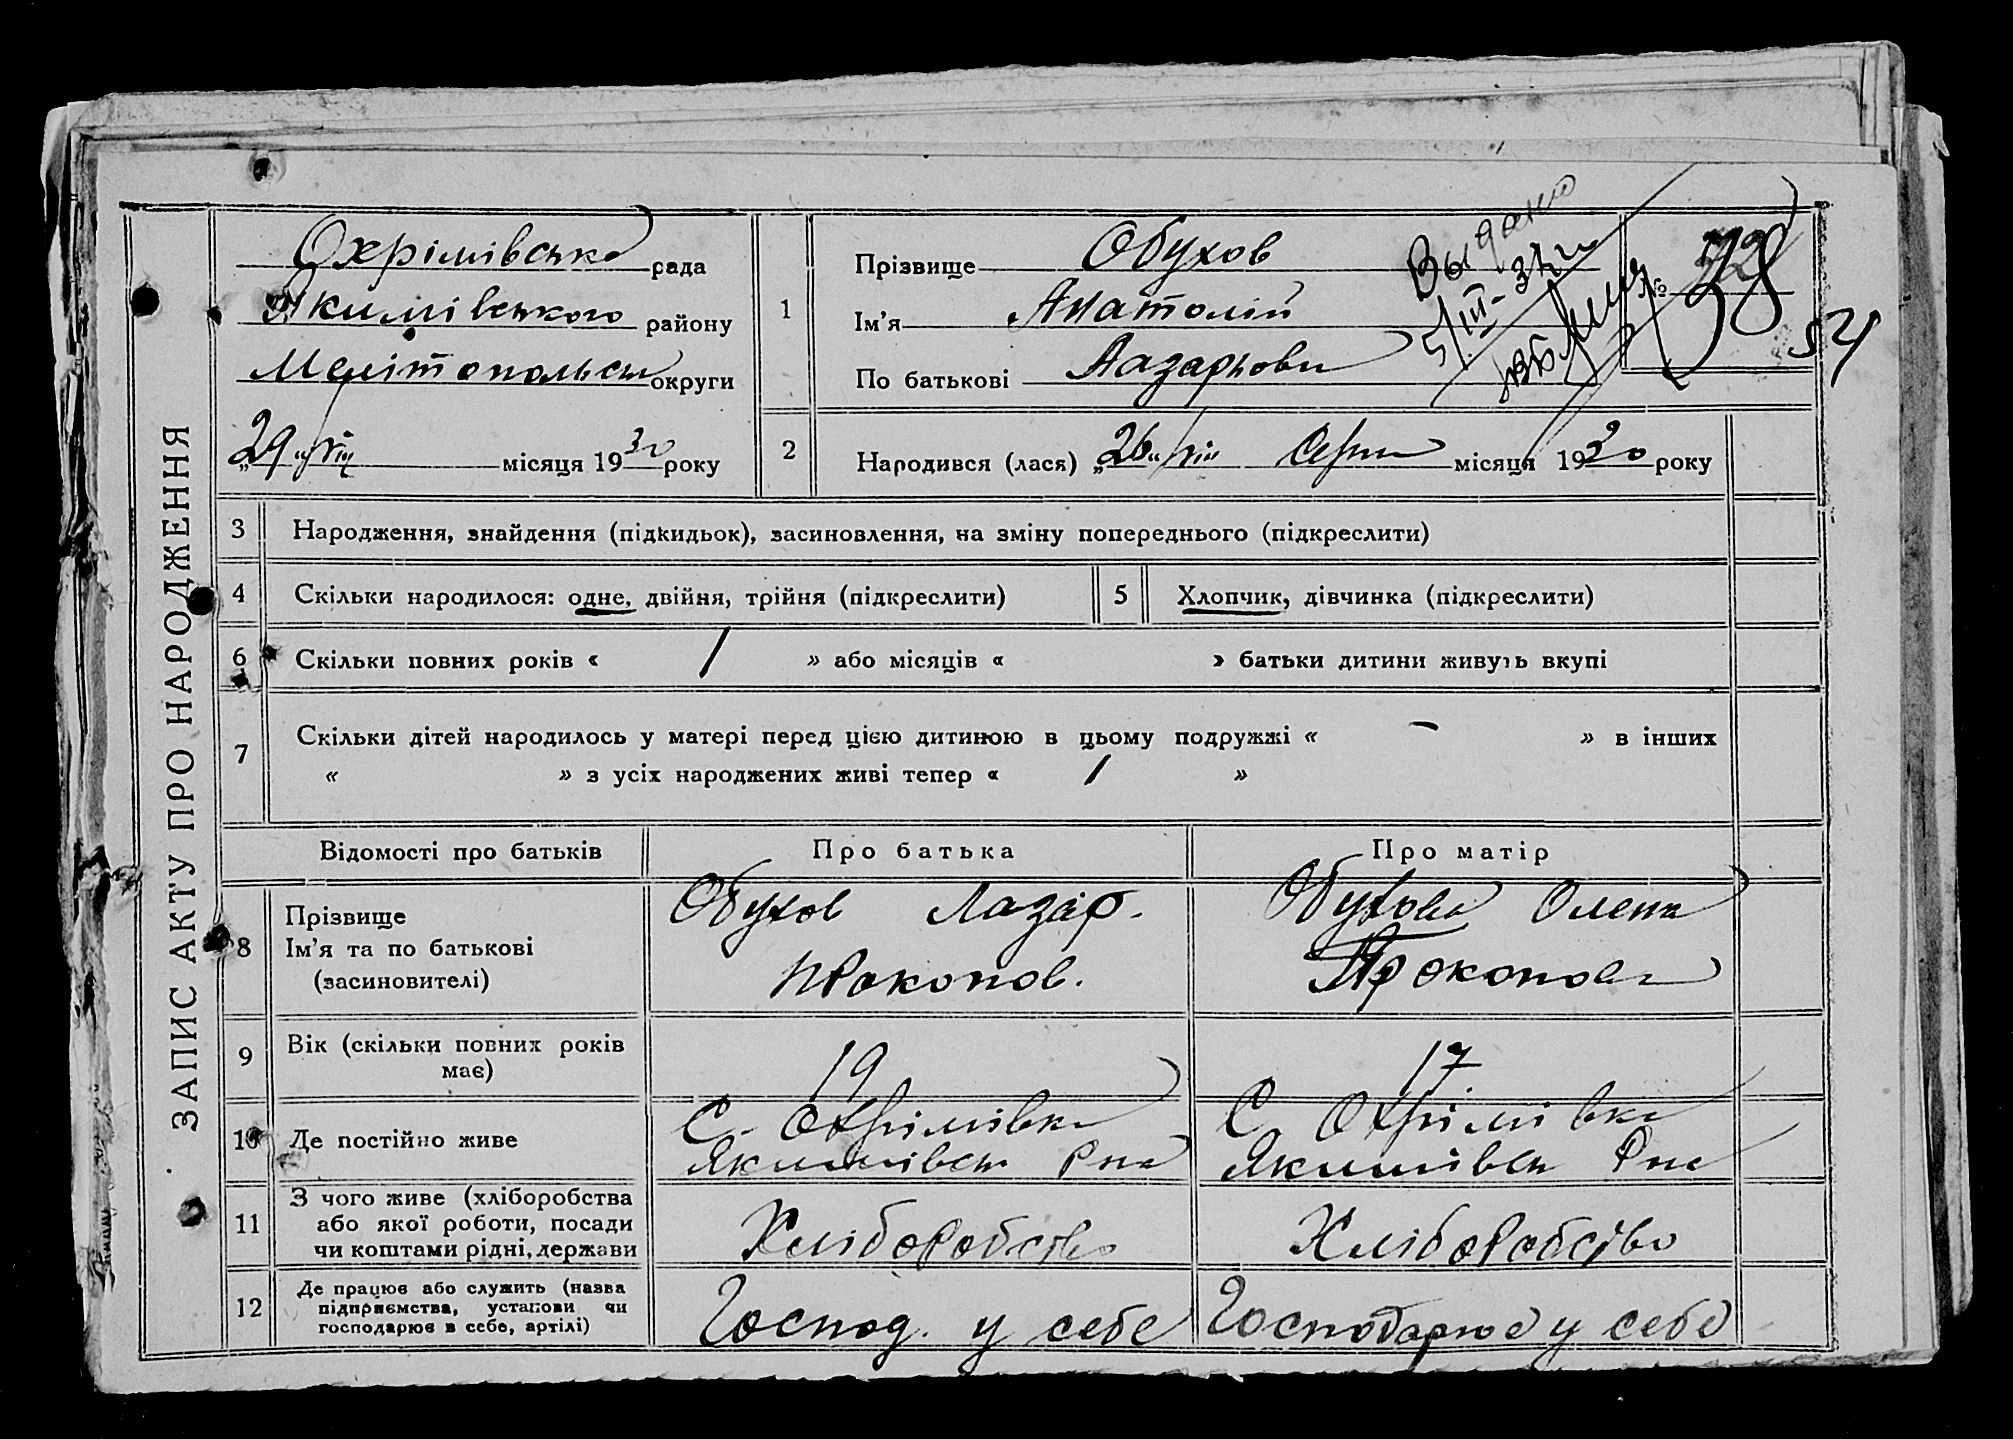 ЗАПИС АКТУ ПРО НАРОДЖЕННЯ
Охрімівська рада
Якимівського району
Мелітопольськ округи
„29“ VIII місяця 1930 року
1
Прізвище Обухов
Ім'я Анатолій
По батькові Лазарьови
Выдано
5/III-
№ 38
54
2
Народився (лася) „26“ VIII Серпн місяця 1930 року
3 Народження, знайдення (підкидьок), засиновлення, на зміну попереднього (підкреслити)
4 Скільки народилося: одне, двійня, трійня (підкреслити)
5 Хлопчик, дівчинка (підкреслити)
6 Скільки повних років « 1 » або місяців « » батьки дитини живуть вкупі
7 Скільки дітей народилось у матері перед цією дитиною в цьому подружжі « – » в інших
« » з усіх народжених живі тепер « 1 »
Відомості про батьків
Про батька
Про матір
8 Прізвище
Ім'я та по батькові
(засиновителі)
Обухов Лазар.
Прокопов.
Обухова Олена
Прокопова
9 Вік (скільки повних років
має)
19
17
10 Де постійно живе
С. Охрімівка
Якимівськ Рна
С. Охрімівка
Якимівськ Рна
11 З чого живе (хліборобства
або якої роботи, посади
чи коштами рідні, держави
Хліборобство
Хліборобство
12 Де працює або служить (назва
підприємства, установи чи
господарює в себе, артілі)
Господ. у себе
Господарює у себе